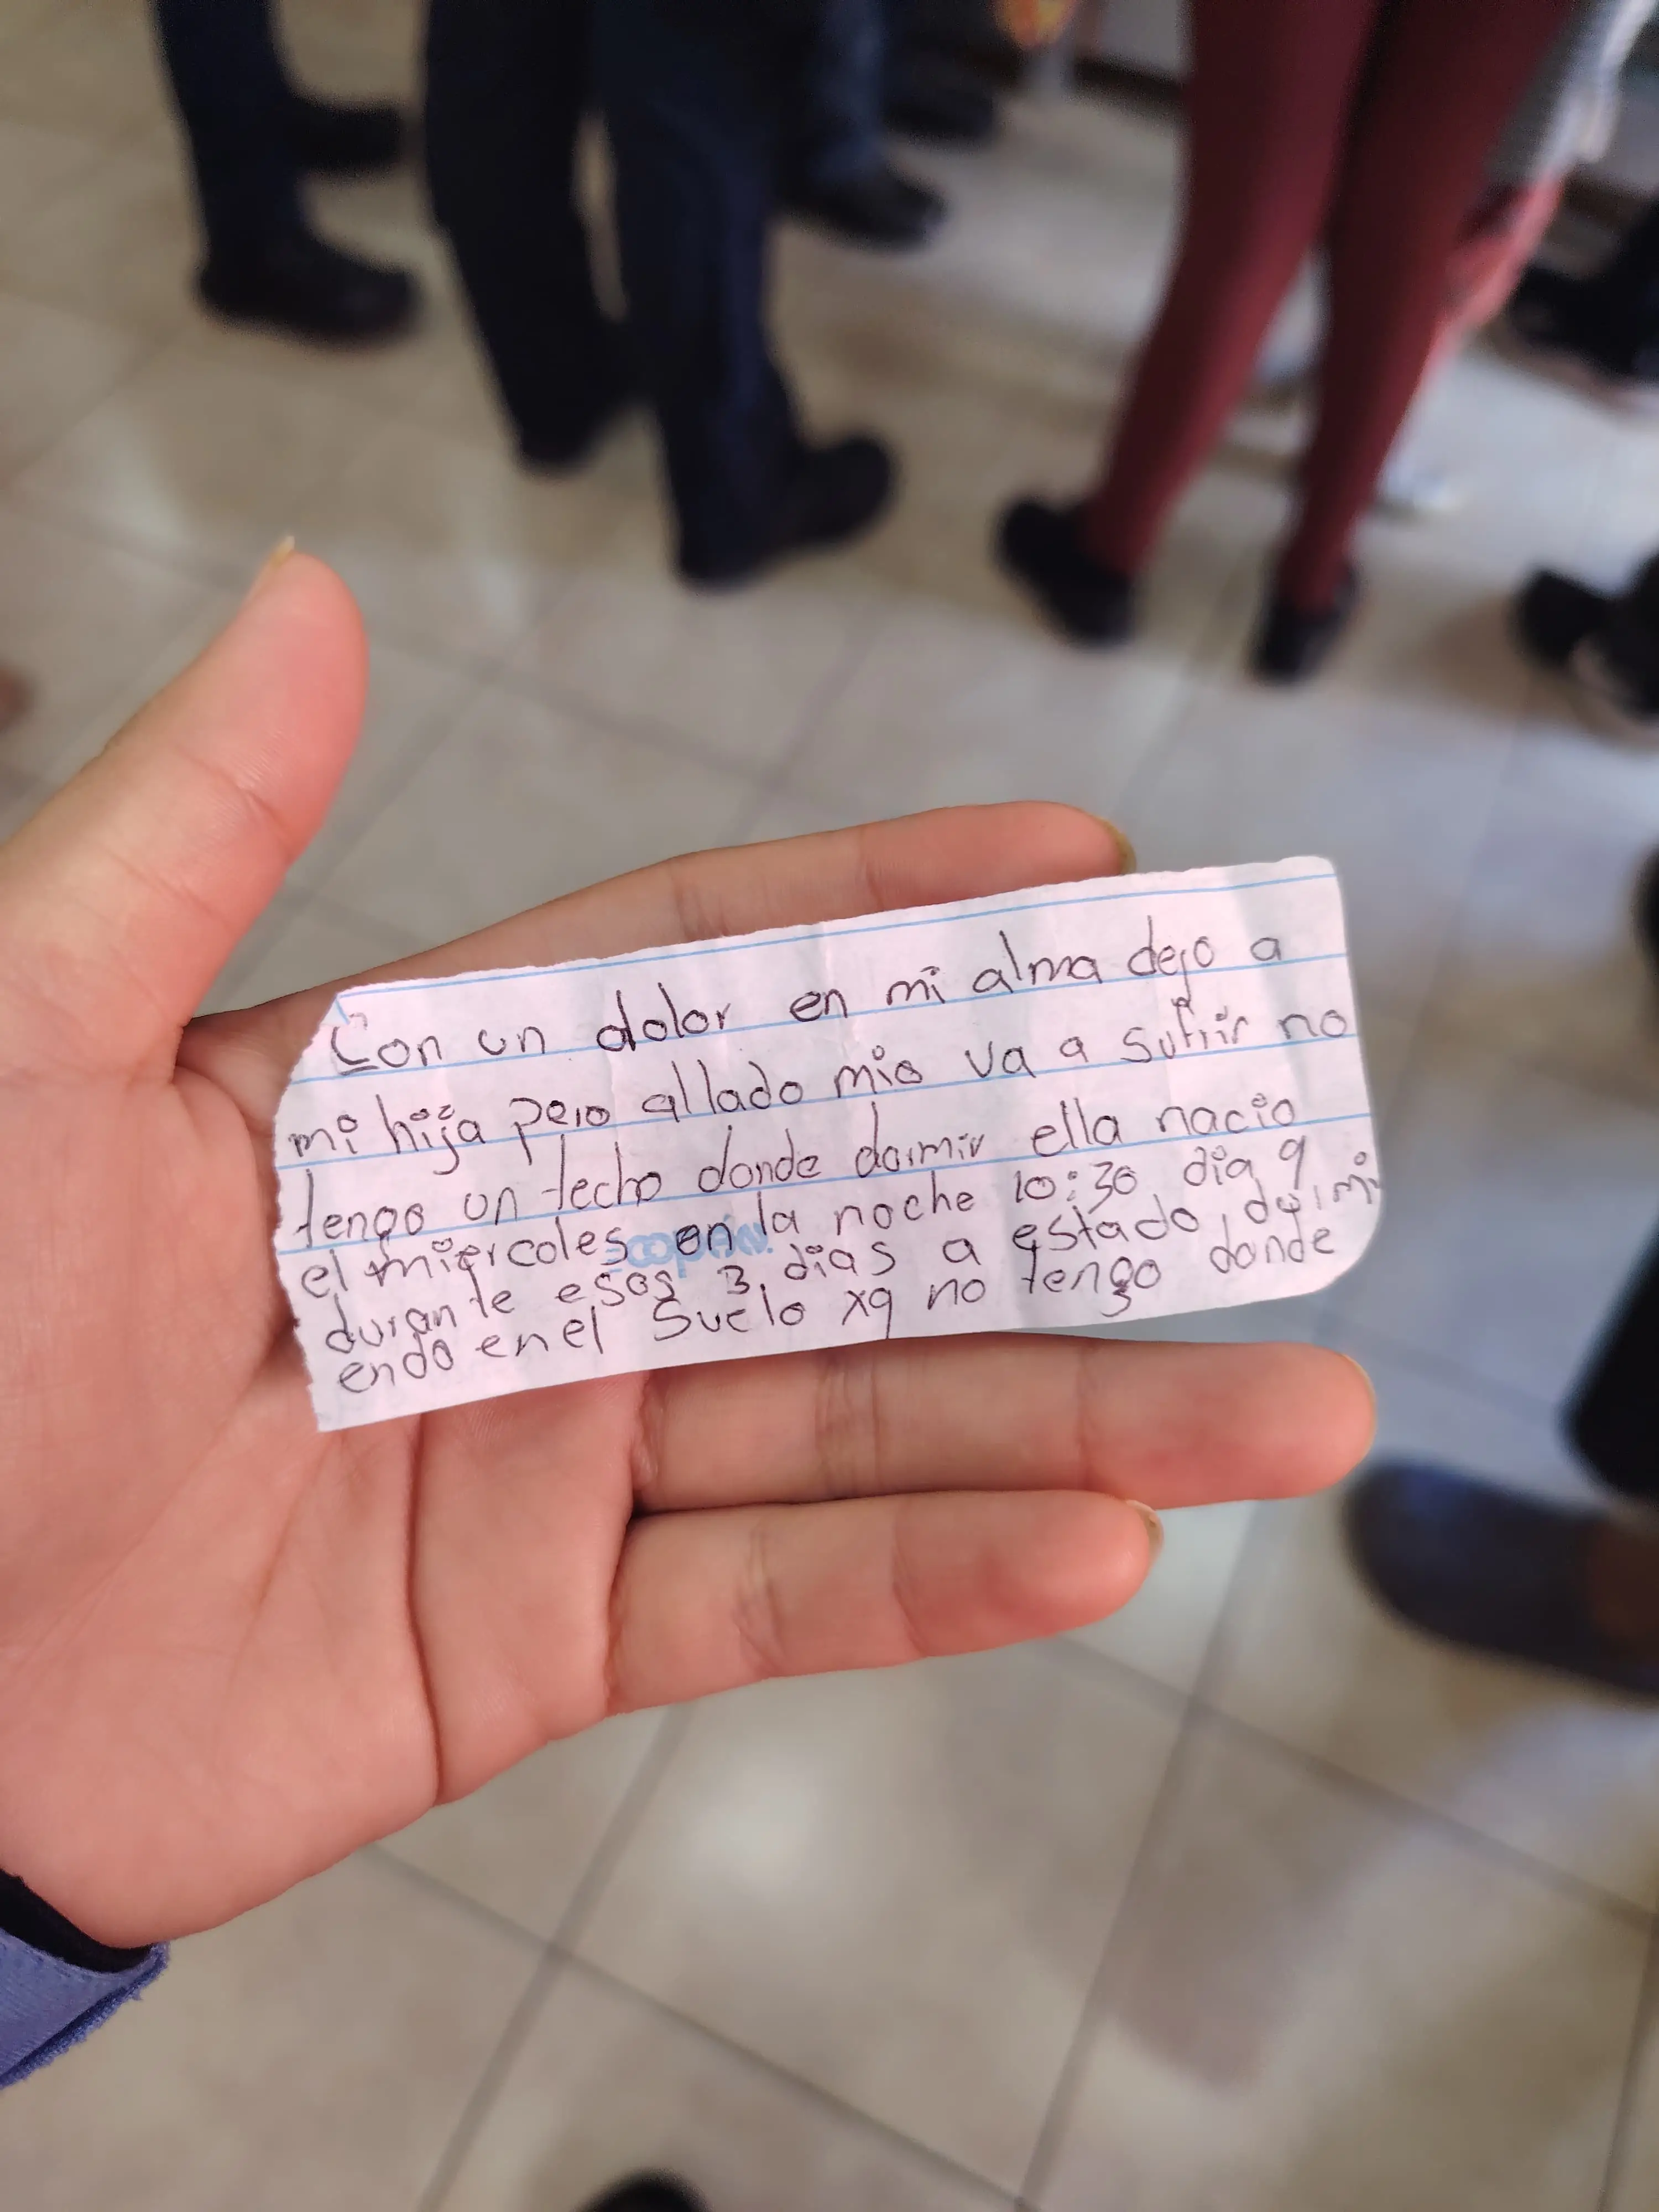 Con un dolor en mi alma dejo a
mi hija pero allado mio va a sufrir no
tengo un techo donde dormir ella nacio
el miercoles en la noche 10:30 dia 9
durante esos 3 dias a estado durmi
endo en el suelo xq no tengo donde
COPAN